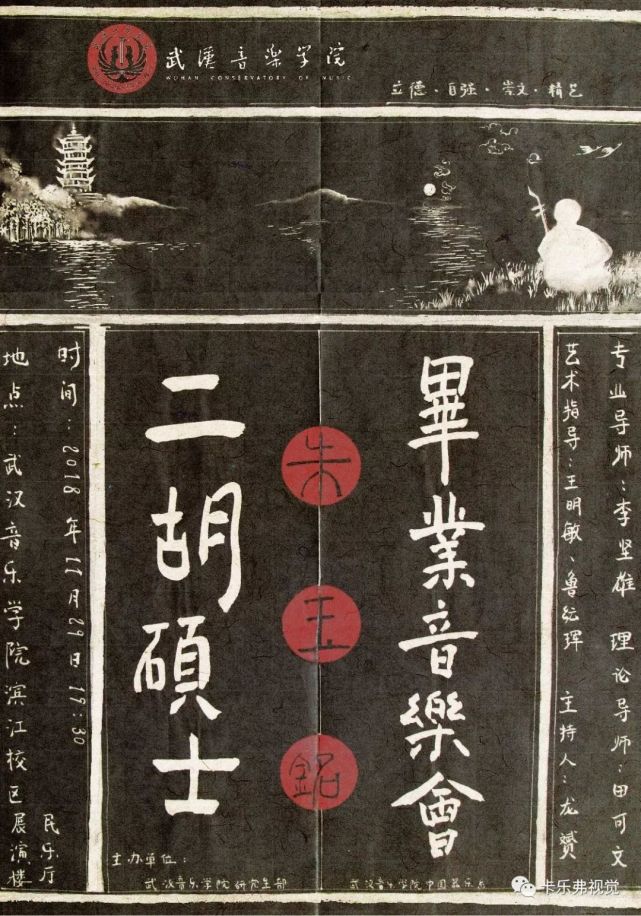 武漢音樂学院
WUHAN CONSERVATORY OF MUSIC
立德·自强·崇文·精艺
专业导师：李坚雄 理论导师：田可文
艺术指导：王明敏、鲁纭珲 主持人：龙赟
畢業音樂會
朱玉銘
二胡碩士
时间：2018年11月29日19:30
地点：武汉音乐学院滨江校区展演楼
民乐厅
主办单位：
武汉音乐学院研究生部
武汉音乐学院中国器乐系
卡乐弗视觉